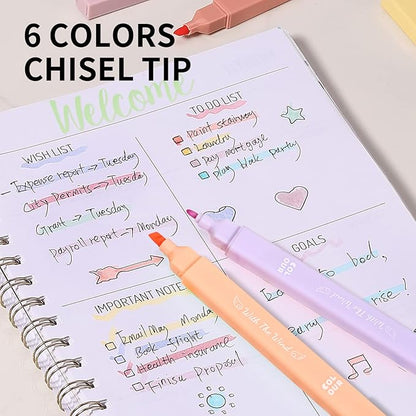 6 COLORS
CHISEL TIP
Welcome
WISH LIST
Expense report → Tuesday
City Permits → Tuesday
Grant → Tuesday
payroll report → Monday
TO DO LIST
Paint stairway
Laundry
Pay mortgage
play blak party
IMPORTANT NOTE
Email May Monday
Book flight
Health insurance
Finisu Proposel
GOALS
to bool,
rise!
Party
COLOUR
With The Wind
COLOUR
With The Wind